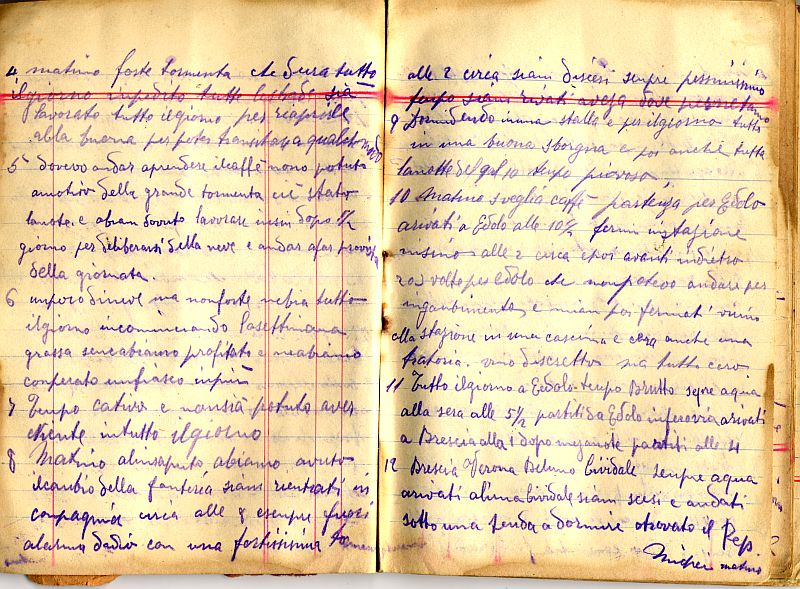 4 matino forte tormenta che dura tutto
il giorno inpedito tutte le strade sia
lavorato tutto il giorno per riaprirle
alla buona per poter transitare a qualche modo
5 dovevo andar aprendere il caffè nono potuto
amotivo della grande tormenta cié stato
lanote. e abiam dovuto lavorare insin dopo 1/2
giorno per deliberarsi della neve e andar afar provista
della giornata.
6 unporo dineve ma nonforte nebia tutto
ilgiorno incominciando lasettimana
grassa seneabiamo profitato e neabiamo
conperato unfiasco
7 Tempo cativo e nonsià potuto aver
niente intutto il giorno
8 Matino alinsaputo abiamo avuto
ilcanbio della fanteria siam rientrati in
conpagnia circa alle 8 esenpre fuori
alarmo con una fortissima
alle 2 circa siam discesi senpre pessimissimo
tenpo siam rivati aveza dove
9 Dormendo inuna stalla e per ilgiorno tutto
in una buona sborgna e poi anche tutta
lanotte del gol 10 tenpo piovoso,
10 Matino sveglia caffè partenza per Edolo
arivati a Edolo alle 10 1/2 fermi instazione
insino alle 2 circa epoi avanti indietro
2 o 3 volte per Edolo che nonpotevo andare per
ingonbimento, e miam poi fermati vicino
alla stazione in una cascina e cera anche una
tratoria. vino discretto ma tutto caro
11 Tutto ilgiorno a Edolo. tenpo Brutto senpre aqua
alla sera alle 5 1/2 partiti da Edolo inferovia arivati
a Brescia alla 1 dopo mezanote partiti alle 4
12 Brescia Verona Beluno Cividale senpre aqua
arivati alima Cividale siam scesi e andati
sotto una tenda adormire otrovato il Pep.
Michei matino